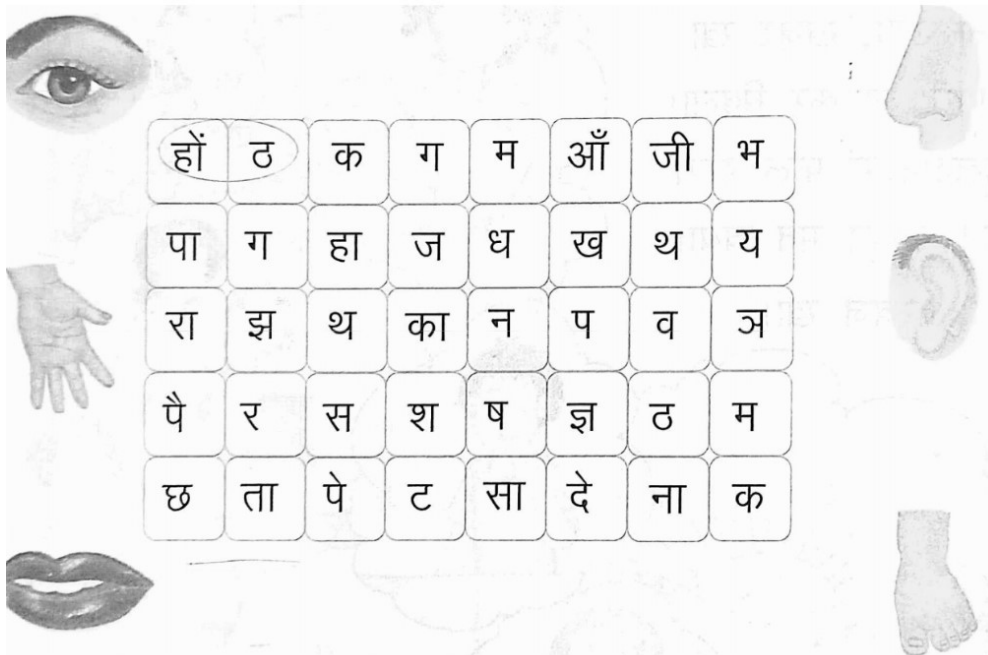 हों ठ क ग म आँ जी भ
पा ग हा ज ध ख थ य
रा झ थ का न प व ञ
पै र स श ष ज्ञ ठ म
छ ता पे ट सा दे ना क